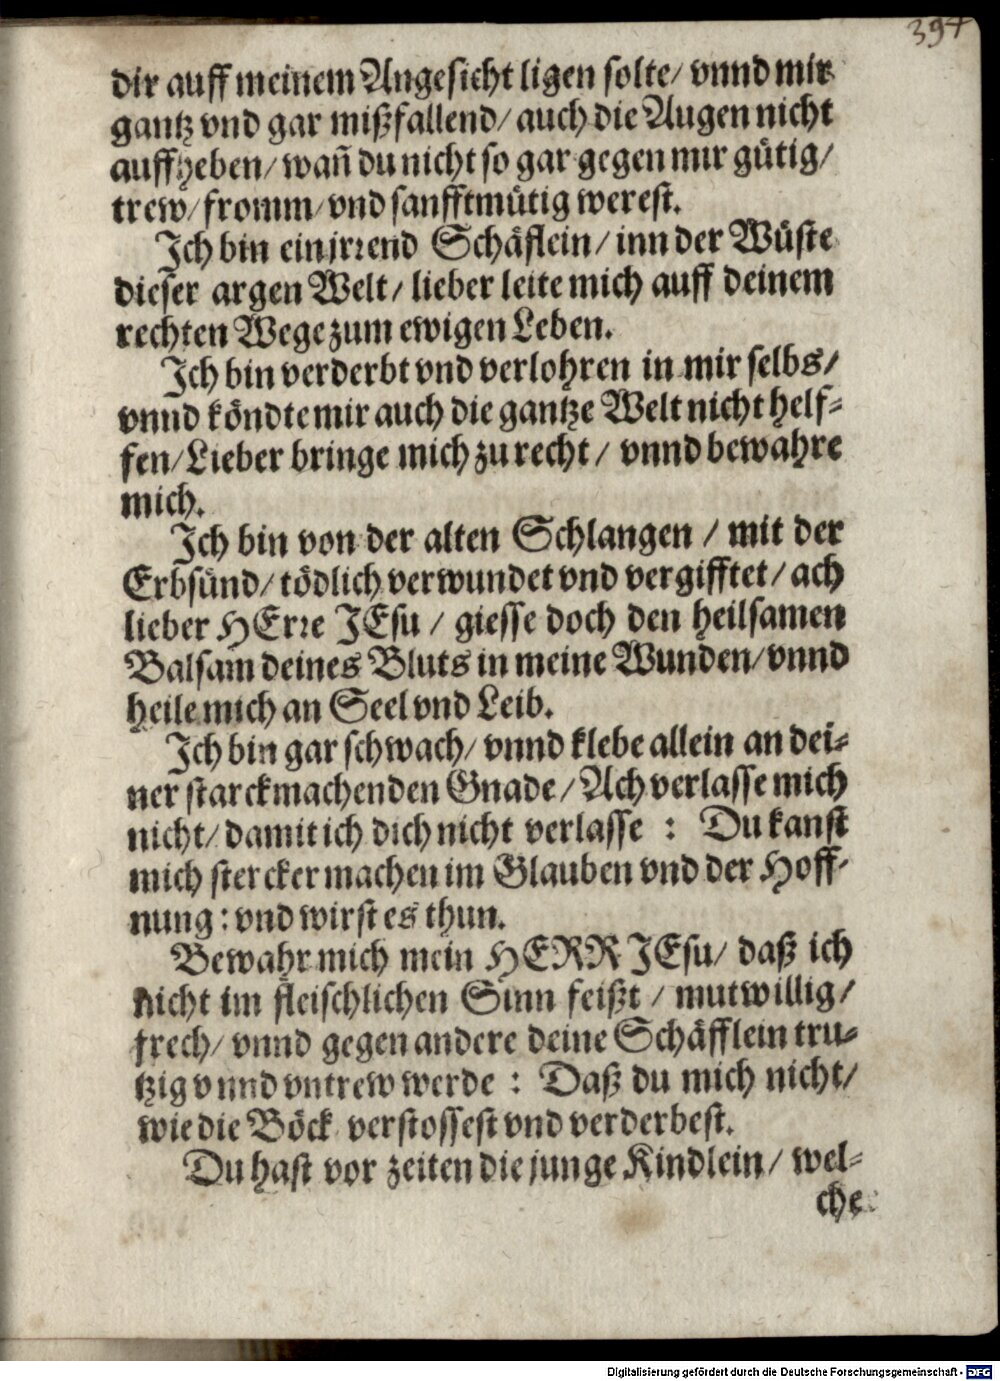 394
dir auff meinem Angesicht ligen solte/ vnnd mir
gantz vnd gar mißfallend/ auch die Augen nicht
auffheben/ wañ du nicht so gar gegen mir gütig/
trew/ fromm/ vnd sanfftmütig werest.
Ich bin ein jrrend Schäflein/ inn der Wüste
dieser argen Welt/ lieber leite mich auff deinem
rechten Wege zum ewigen Leben.
Ich bin verderbt vnd verlohren in mir selbs/
vnnd köndte mir auch die gantze Welt nicht helf-
fen/ Lieber bringe mich zu recht/ vnnd bewahre
mich.
Ich bin von der alten Schlangen/ mit der
Erbsünd/ tödlich verwundet vnd vergifftet/ ach
lieber HErre JEsu/ giesse doch den heilsamen
Balsam deines Bluts in meine Wunden/ vnnd
heile mich an Seel vnd Leib.
Ich bin gar schwach/ vnnd klebe allein an dei-
ner starckmachenden Gnade/ Ach verlasse mich
nicht/ damit ich dich nicht verlasse: Du kanst
mich stercker machen im Glauben vnd der Hoff-
nung: vnd wirst es thun.
Bewahr mich mein HERR JEsu/ daß ich
nicht im fleischlichen Sinn feißt/ mutwillig/
frech/ vnnd gegen andere deine Schäfflein tru-
tzig vnnd vntrew werde: Daß du mich nicht/
wie die Böck verstossest vnd verderbest.
Du hast vor zeiten die junge Kindlein/ wel-
che
Digitalisierung gefördert durch die Deutsche Forschungsgemeinschaft - DFG